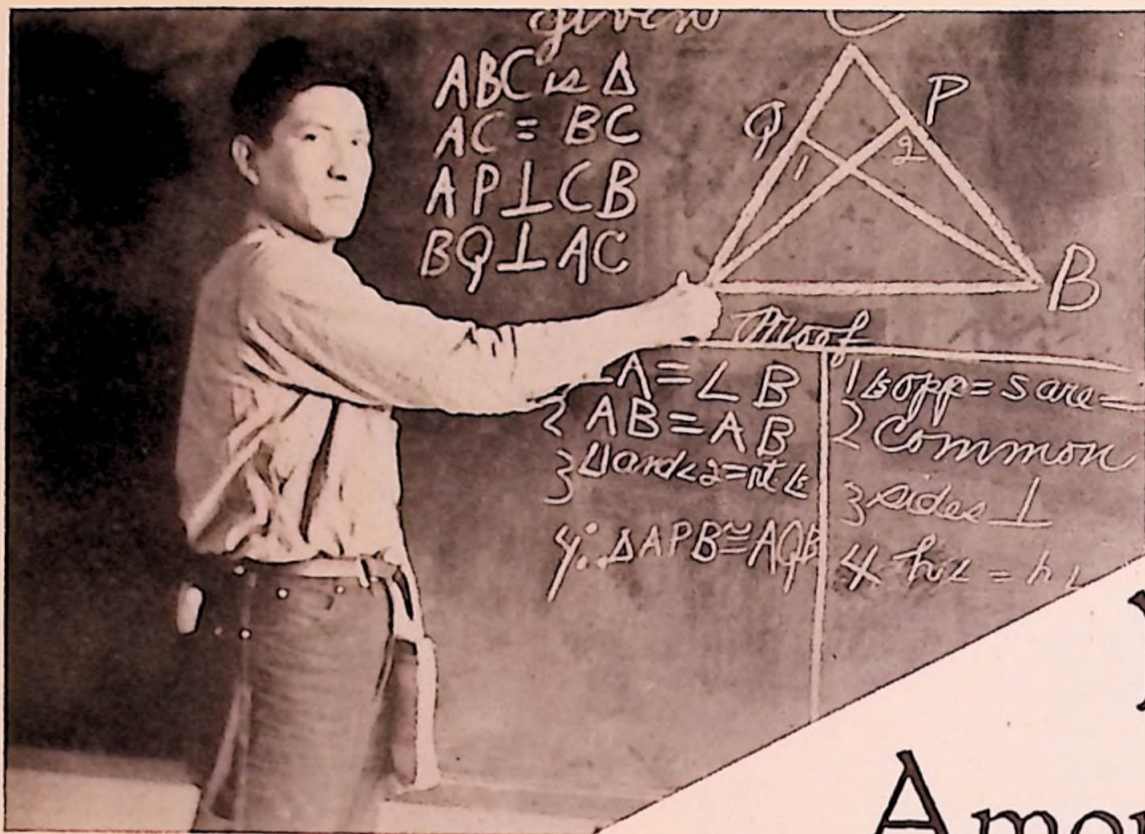 given
ABC is Δ
AC = BC
AP⊥CB
BQ⊥AC
C
Q
P
1
2
B
Proof
∠A = ∠B
2 AB = AB
3 and ∠2 = rt ∠s
4 ∴ ΔAPB ≅ AQB
1 ∠s opp = s are =
2 Common
3 sides ⊥
4. h∠ = h∠
Amer